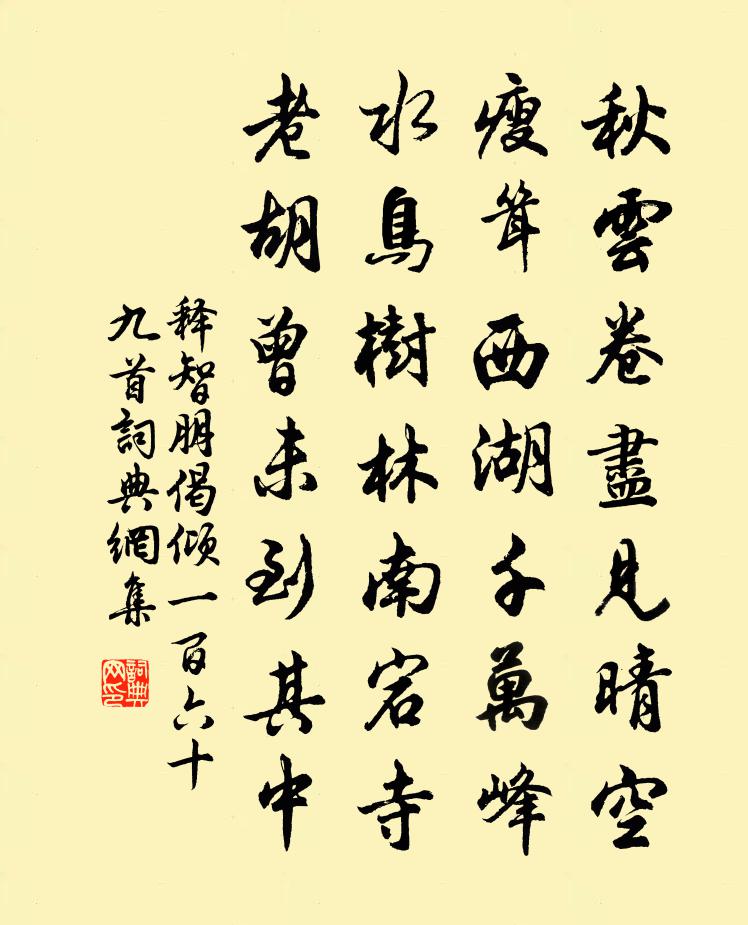 秋雲卷盡見晴空
瘦耸西湖千萬峰
水鳥樹林南岩寺
老胡曾未到其中
释智朋偈傾一百六十
九首詞典網集
詞典
网印